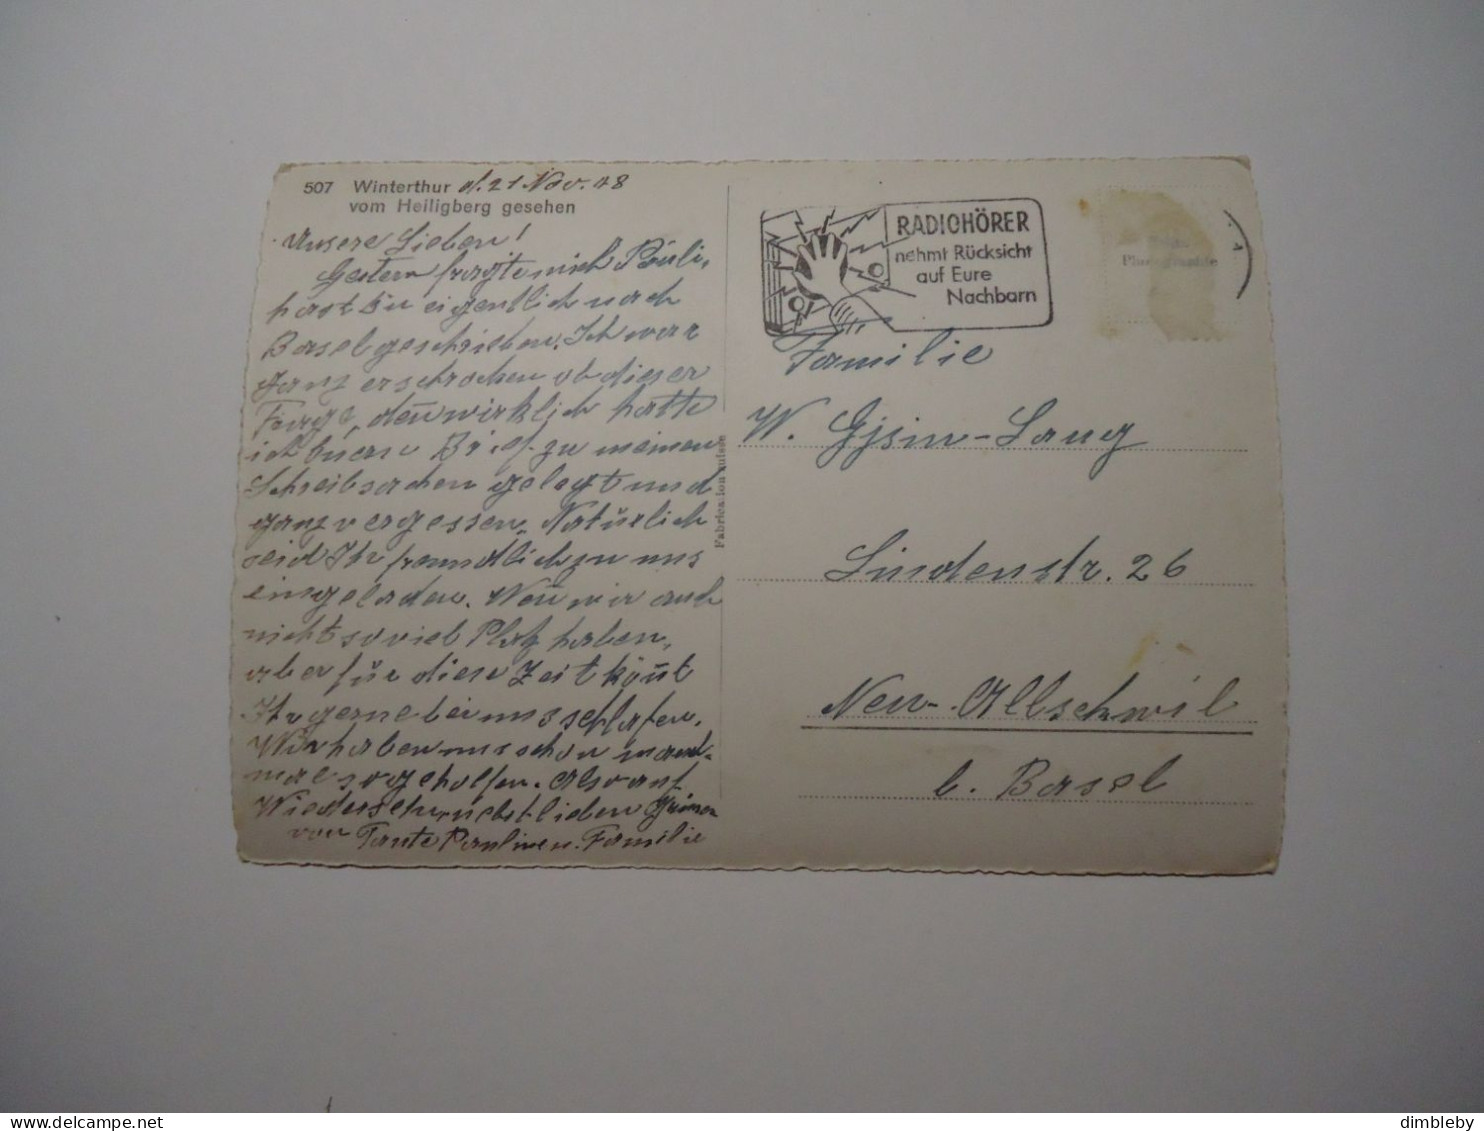 507 Winterthur d. 21 Nov. 48
vom Heiligberg gesehen
Unsere Lieben!
Gestern fragte mich Pauli,
hast Du eigentlich nach
Basel geschrieben. Ich war
ganz erschrocken ob dieser
Frage, deñ wirklich hatte
ich Euern Brief zu meinen
Schreibsachen gelegt und
ganz vergessen. Natürlich
seid Ihr freundlich zu uns
eingeladen. Weñ wir auch
nicht so viel Platz haben,
aber für diese Zeit köñt
Ihr gerne bei uns schlafen.
Wir haben uns schon manch-
mal so geholfen. Also auf
Wiedersehen nebst lieben Grüssen
von Tante Pauline u. Familie
Fabrication suisse
RADIOHÖRER
nehmt Rücksicht
auf Eure
Nachbarn
Familie
W. Gysin-Lang
Lindenstr. 26
Neu-Allschwil
b. Basel
dimbleby